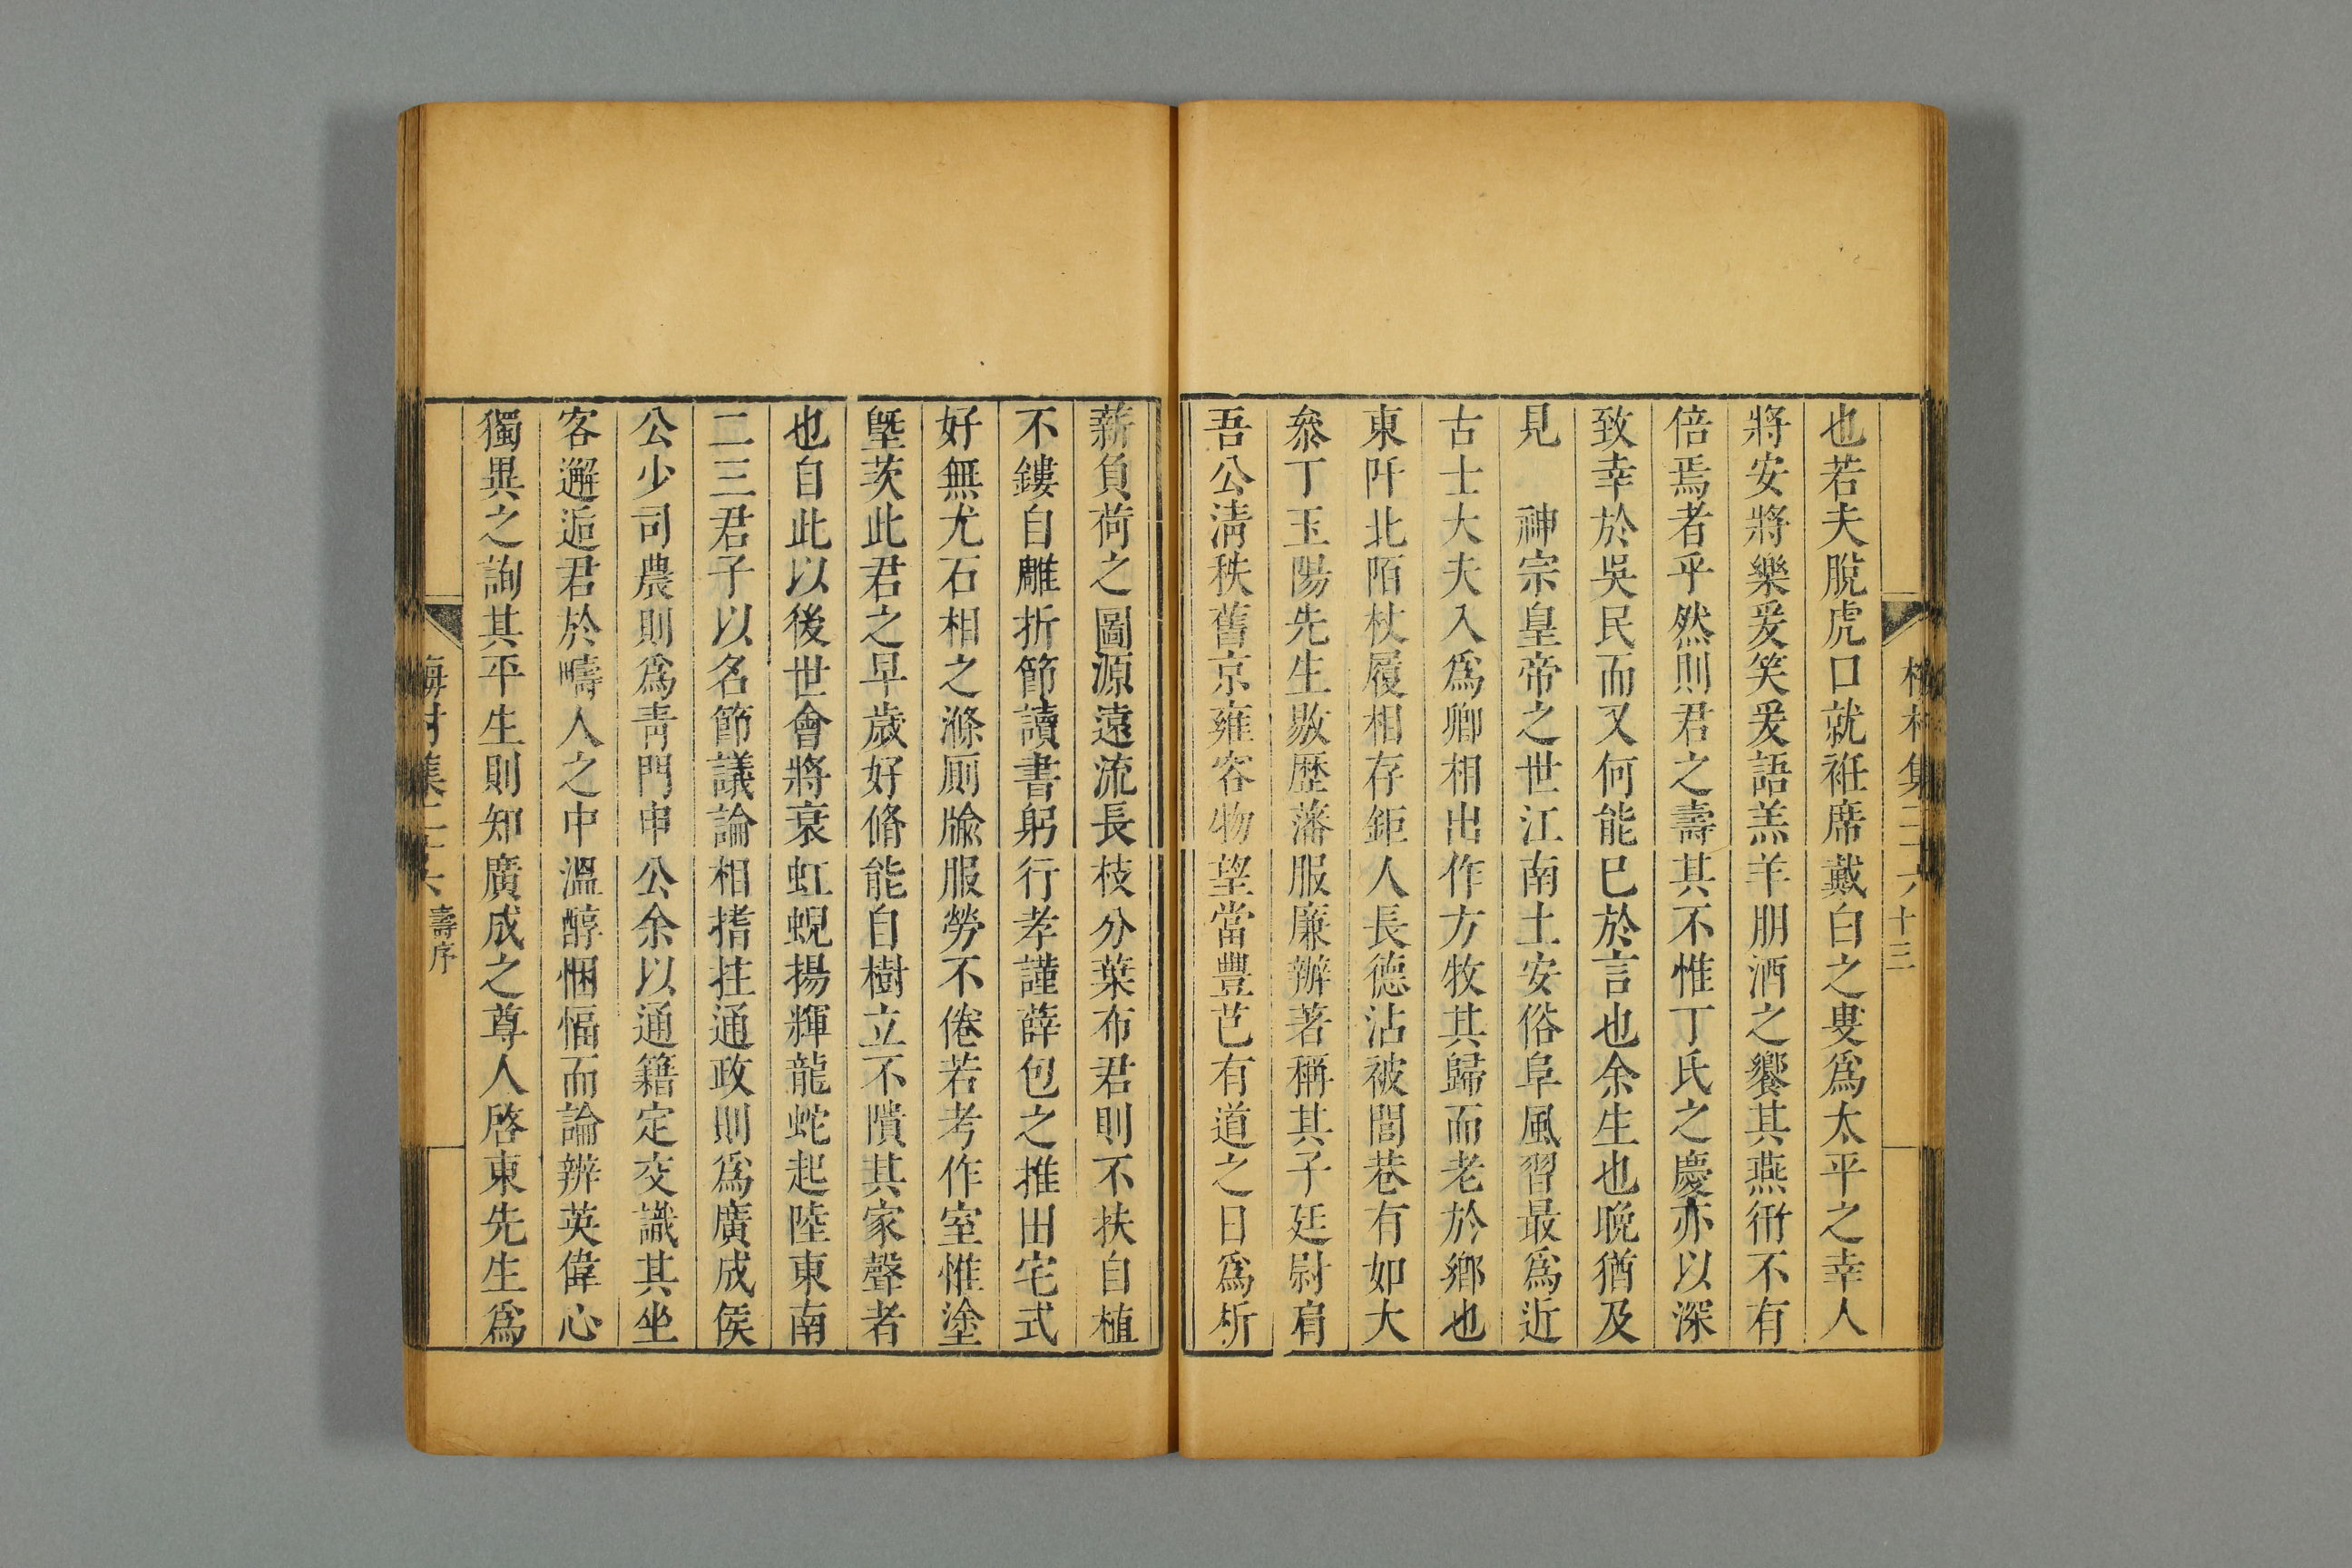 十三
也若夫脫虎口就袵席戴白之叟爲太平之幸人
將安將樂爰笑爰語羔羊朋酒之饗其燕衎不有
倍焉者乎然則君之壽其不惟丁氏之慶亦以深
致幸於吳民而又何能已於言也余生也晚猶及
見　神宗皇帝之世江南土安俗阜風習最爲近
古士大夫入爲卿相出作方牧其歸而老於鄉也
東阡北陌杖履相存鉅人長德沾被閭巷有如大
叅丁玉陽先生敭歷藩服廉辦著稱其子廷尉肩
吾公淸秩舊京雍容物望當豐芑有道之日爲析
薪負荷之圖源遠流長枝分葉布君則不扶自植
不鏤自雕折節讀書躬行孝謹薛包之推田宅式
好無尤石相之滌厠牏服勞不倦若考作室惟塗
墍茨此君之早歲好脩能自樹立不隤其家聲者
也自此以後世會將衰虹蜺揚輝龍蛇起陸東南
二三君子以名節議論相搘拄通政則爲廣成侯
公少司農則爲靑門申公余以通籍定交識其坐
客邂逅君於疇人之中溫醇悃愊而論辨英偉心
獨異之詢其平生則知廣成之尊人啓東先生爲
梅村集二十六
壽序